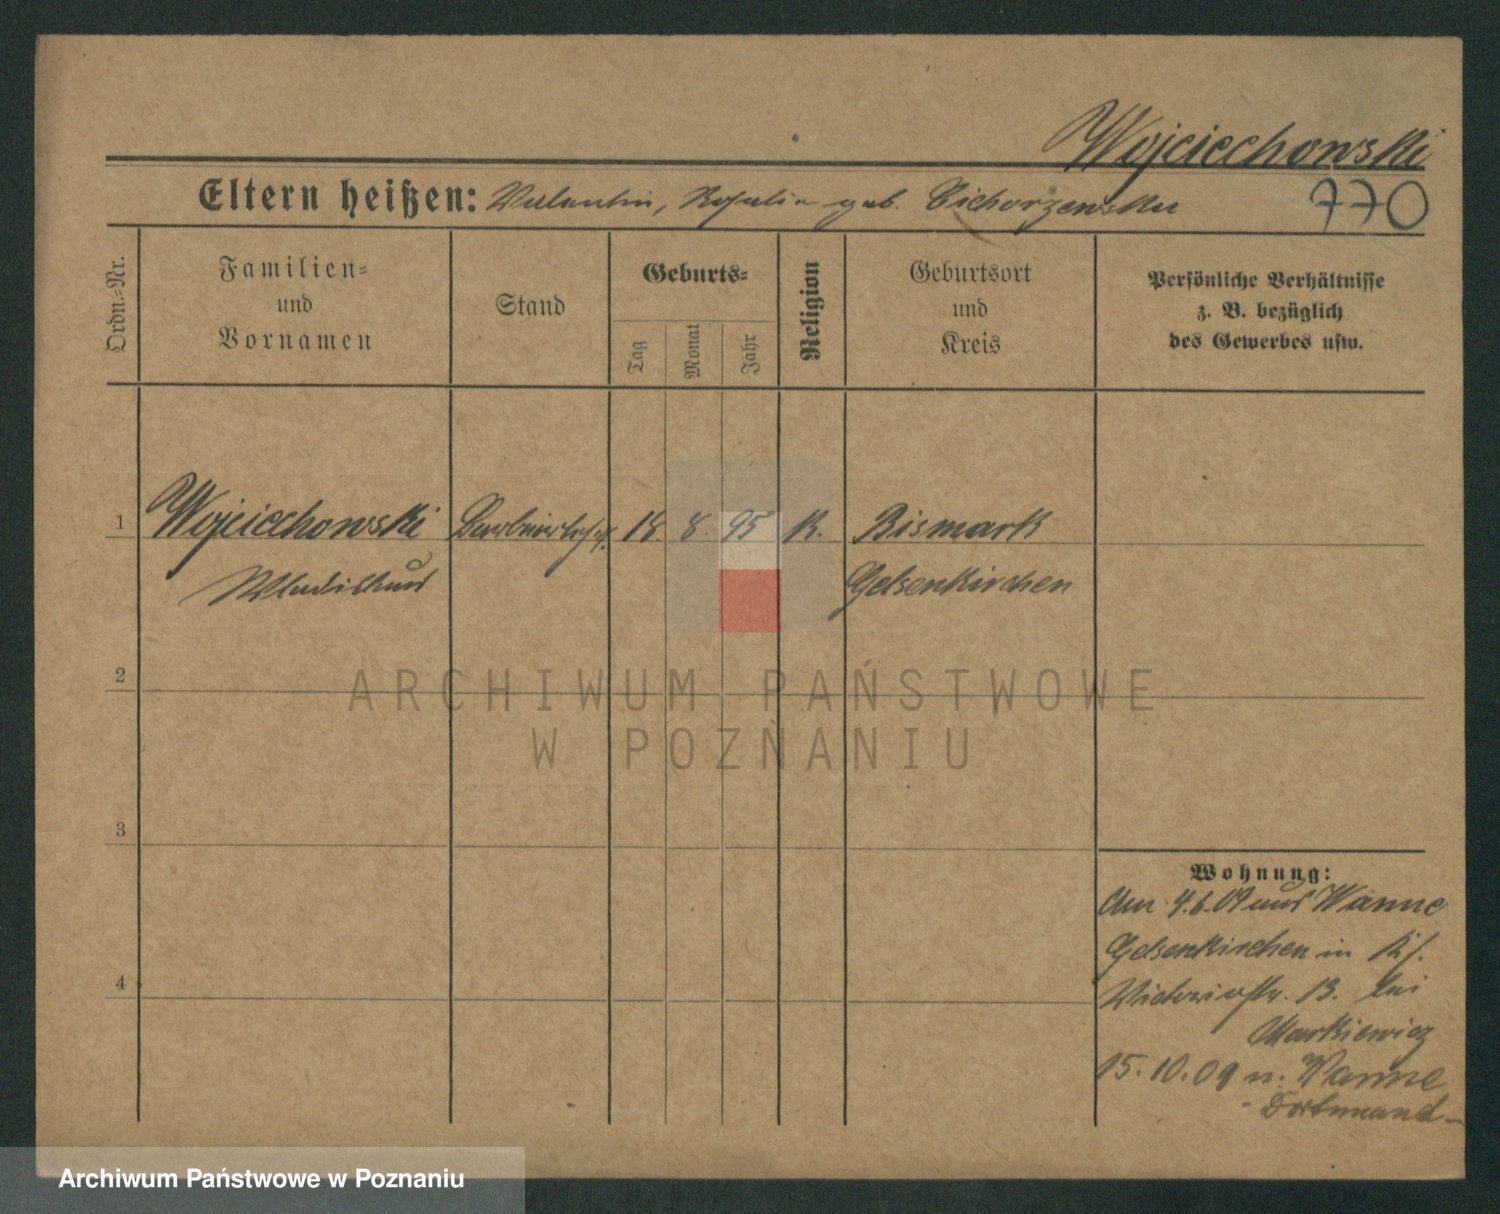 Wojciechowski
Eltern heißen: Valentin, Rosalia geb. Cichorzewska
770
Ordn.-Nr.
Familien-
und
Vornamen
Stand
Geburts-
Tag
Monat
Jahr
Religion
Geburtsort
und
Kreis
Persönliche Verhältnisse
z. B. bezüglich
des Gewerbes usw.
1 Wojciechowski 18. 8. 95 K. Bismark
Wladislaus Gelsenkirchen
2
ARCHIWUM PAŃSTWOWE
W POZNANIU
3
4
Wohnung:
Am 4.6.09 aus Wanne
Gelsenkirchen in
Victoriastr. 13. bei
Markiewicz
15.10.09 n. Wanne
- Dortmund -
Archiwum Państwowe w Poznaniu